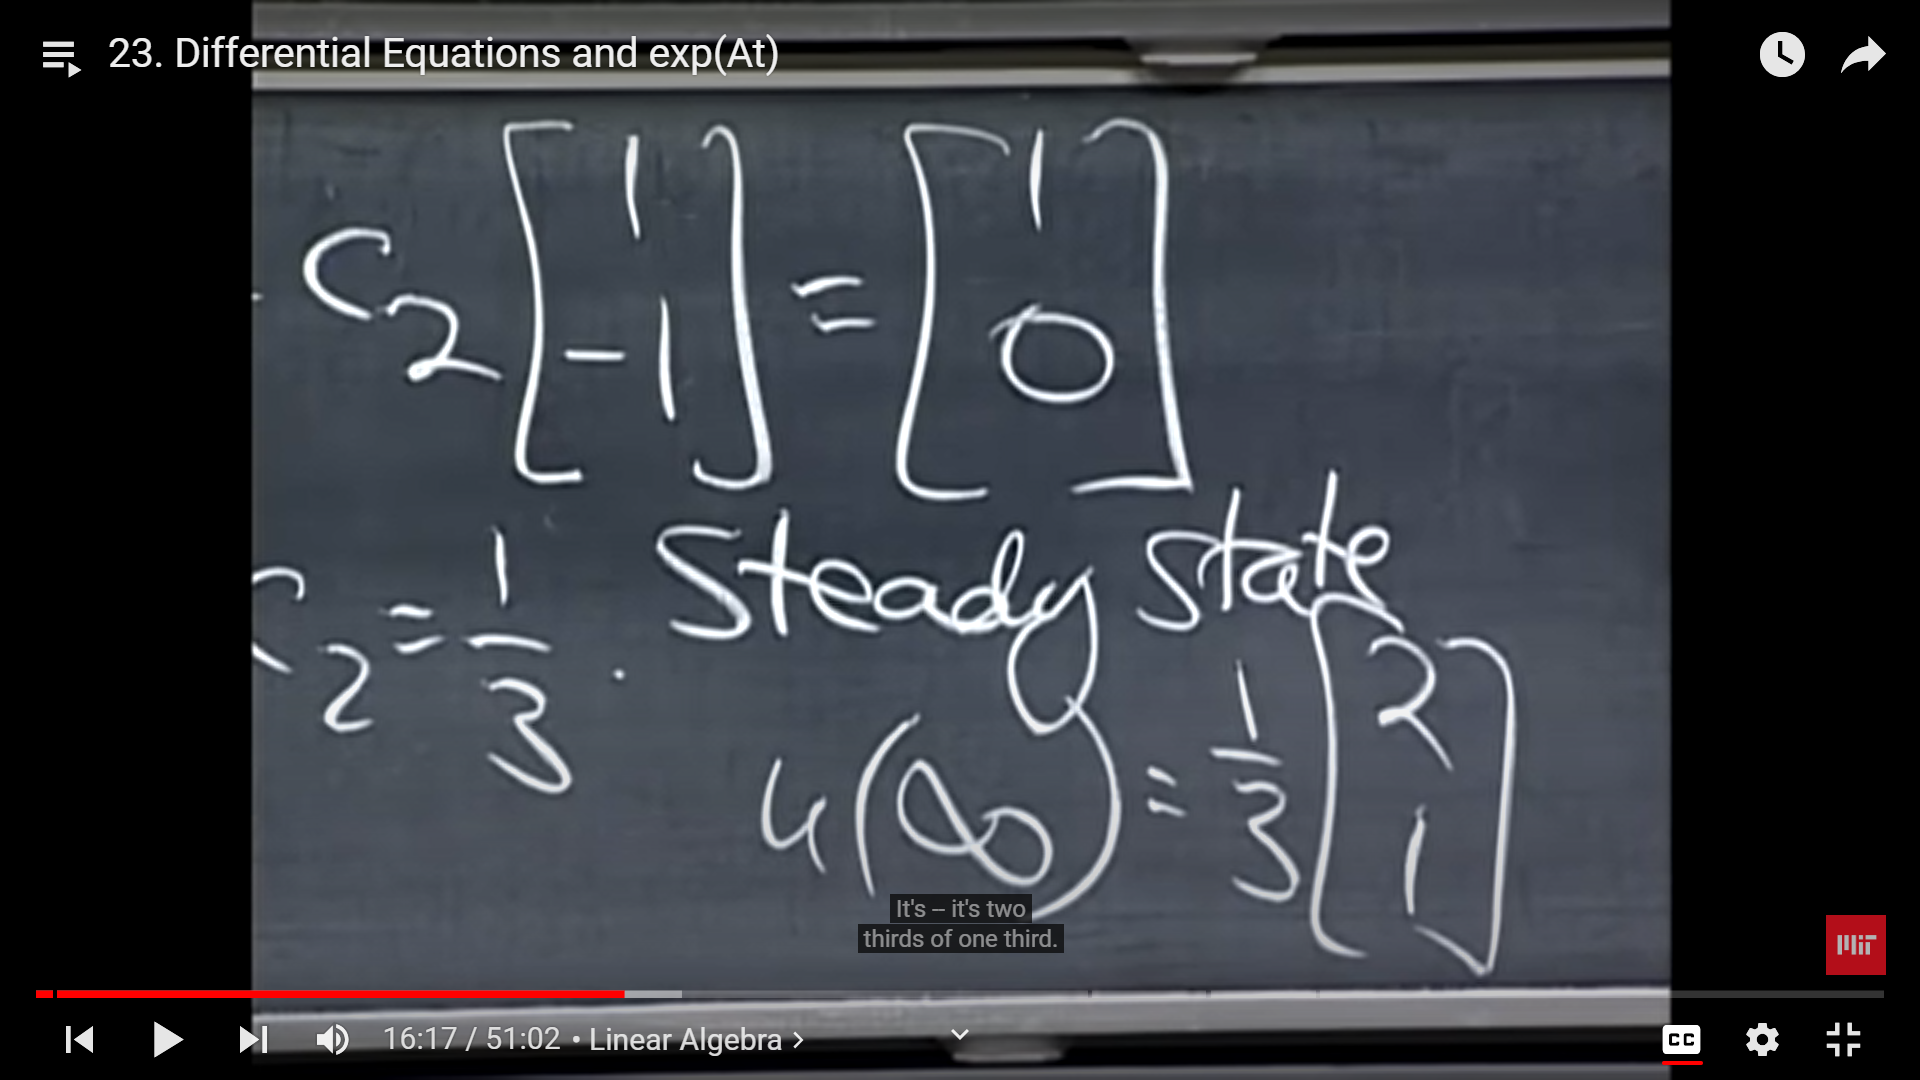 23. Differential Equations and exp(At)
C2 [ 1 -1 ] = [ 1 0 ]
C2 = 1/3 .
Steady state
u(∞) = 1/3 [ 2 1 ]
It's – it's two
thirds of one third.
MIT
16:17 / 51:02 • Linear Algebra >
CC